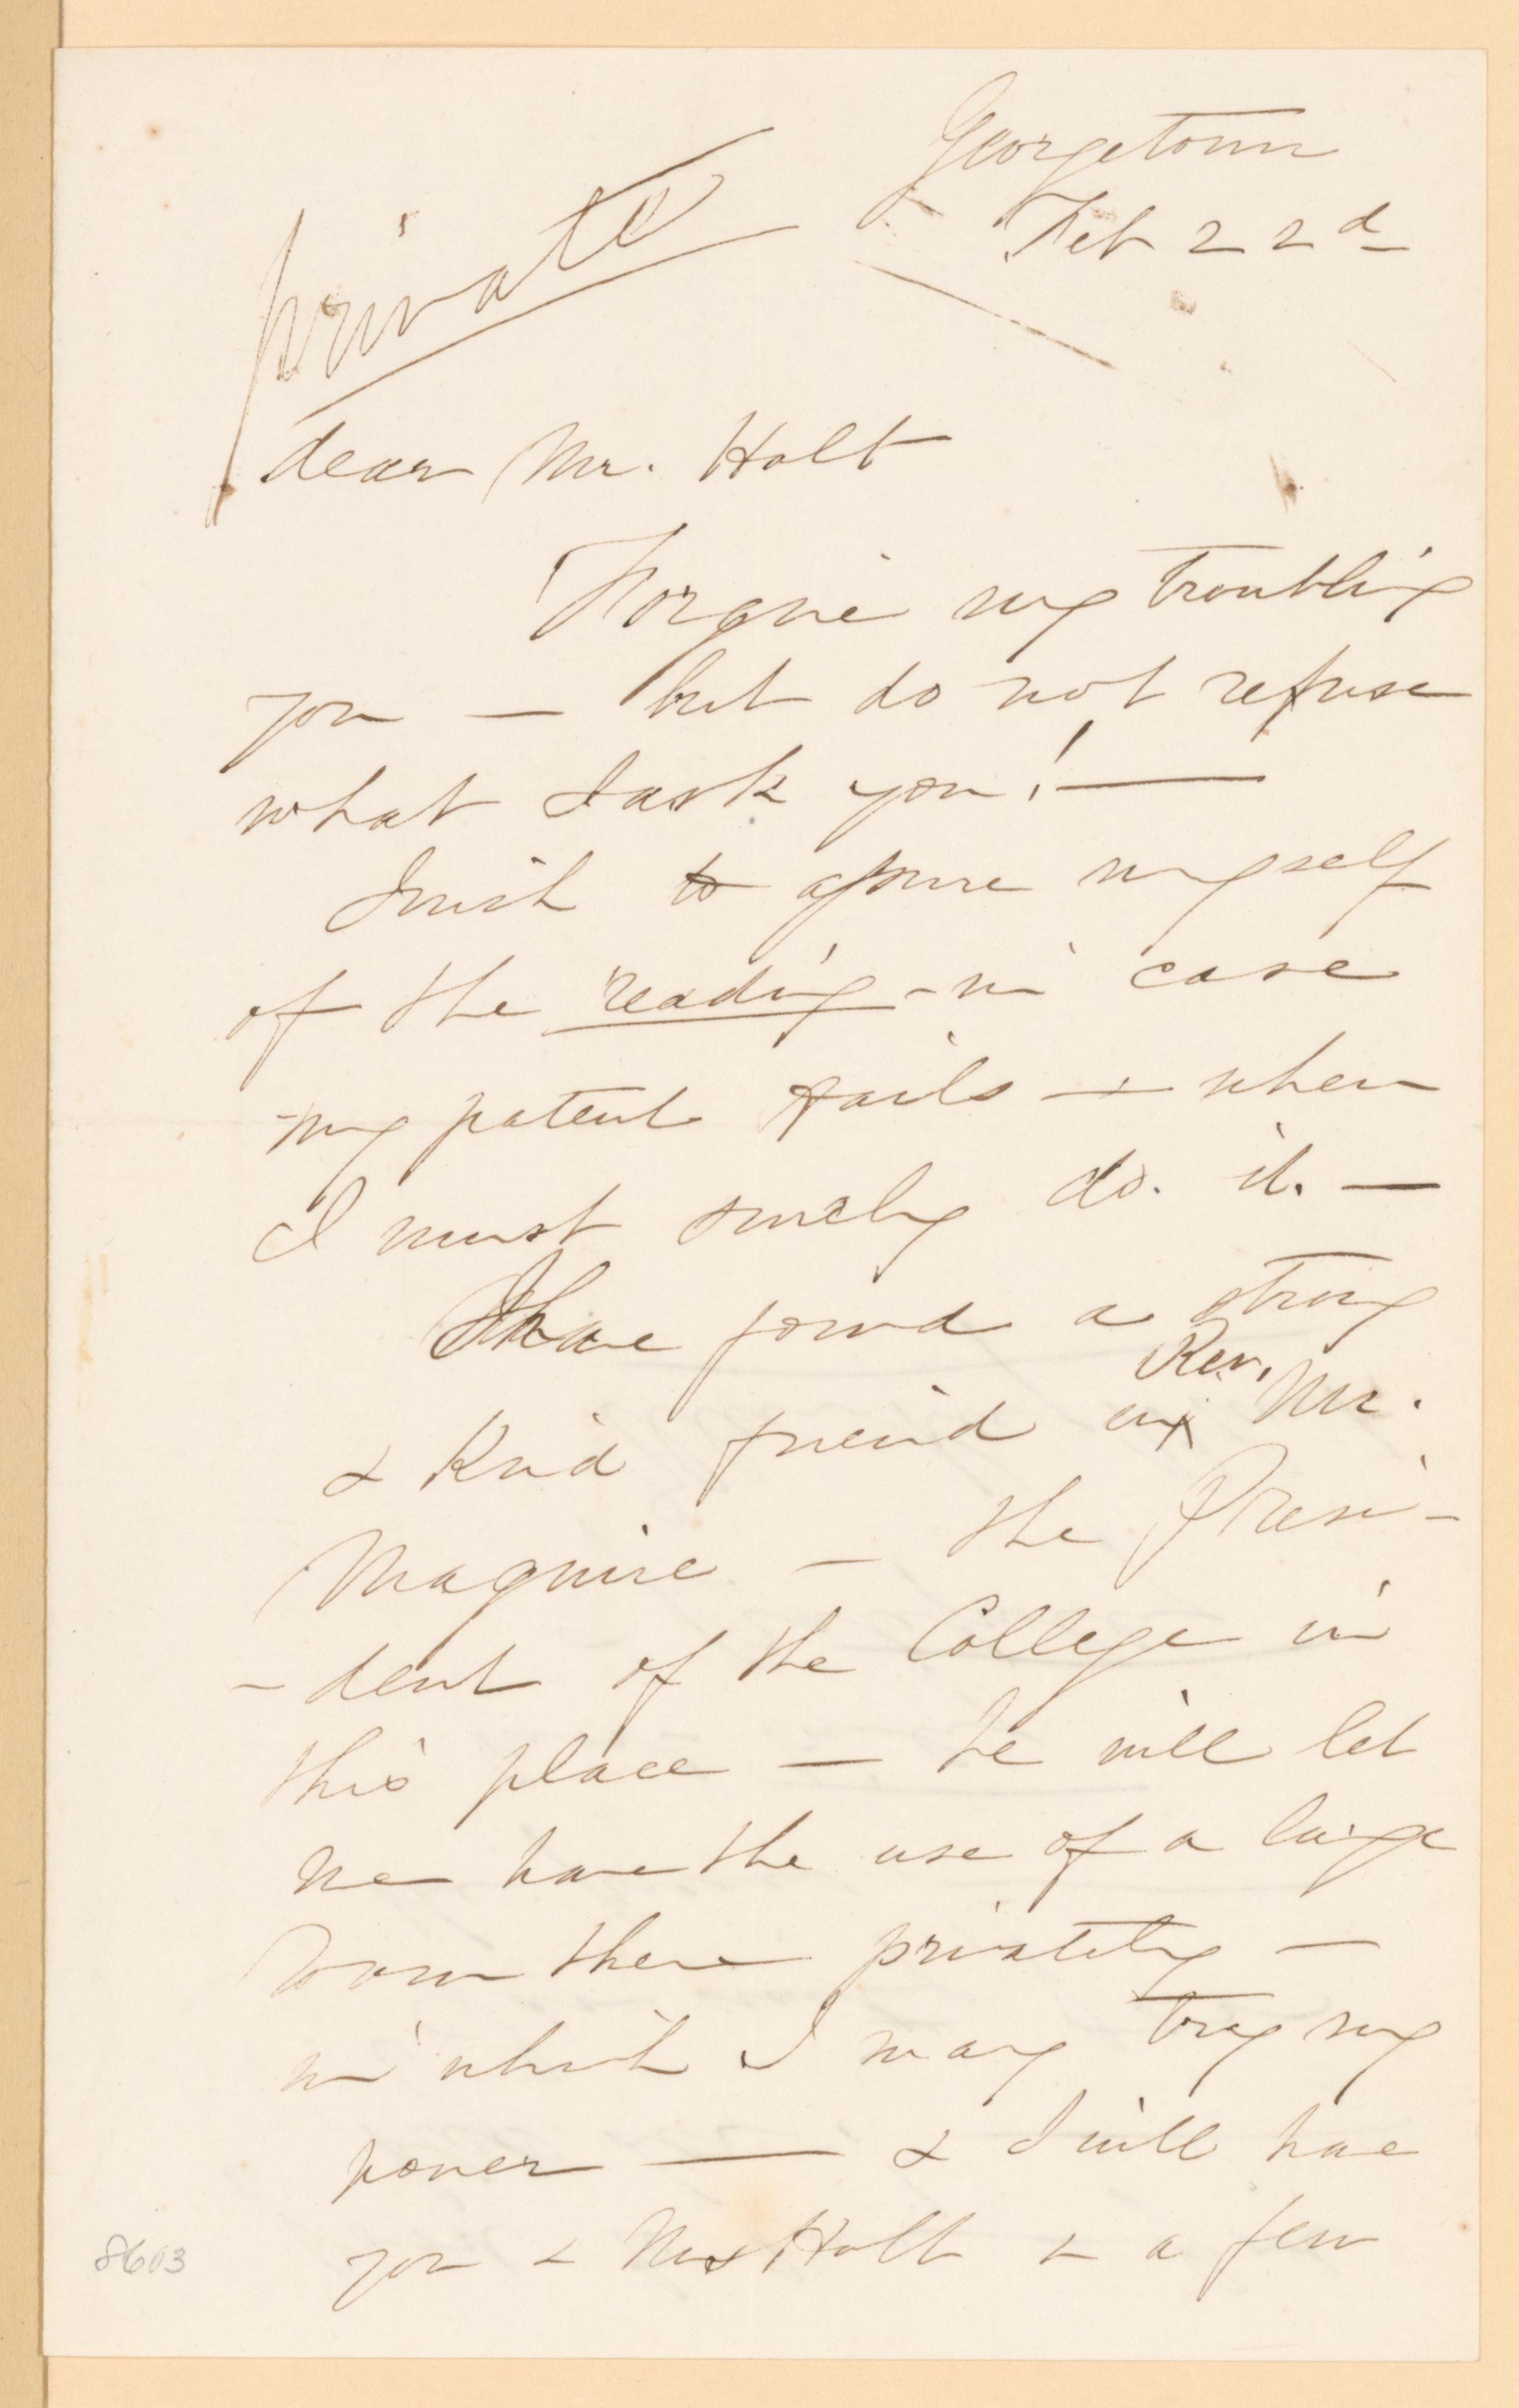 private
Georgetown
Feb 22d
dear Mr. Holt
Forgive my troubling
you — but do not refuse
what I ask you! —
I wish to assure myself
of the reading - in case
my patent fails — & when
I must surely do. it. —
I have found a strong
& kind friend in Rev. Mr.
Maguire — the Presi-
-dent of the College in
this place — he will let
me have the use of a large
room there privately —
in which I may try my
power — & I will have
you & Mrs Holt & a few
8603